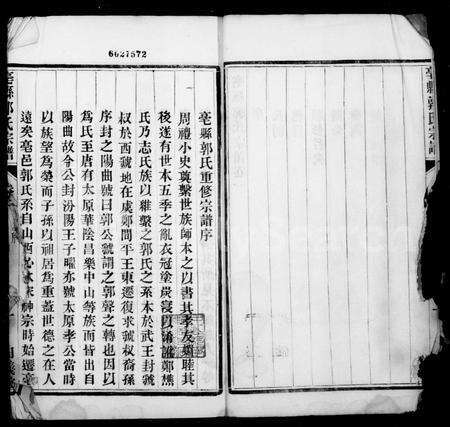 6021572
亳縣郭氏重修宗譜序
周禮小史奠繫世族師本之以書其孝友睦婣其
後遂有世本五季之亂衣冠塗炭寖以淆訛鄭樵
氏乃志氏族以維繫之郭氏之系本於武王封虢
叔於西虢地在虞鄭間平王東遷復求虢叔裔孫
序封之陽曲號曰郭公虢謂之郭聲之轉也因以
爲氏至唐有太原華陰昌樂中山等族而皆出自
陽曲故令公封汾陽王子曜亦號太原孝公當時
以族望爲榮而子孫以神居爲重蓋世德之在人
遠矣亳邑郭氏系自山西 宋神宗時始遷亳
亳縣郭氏宗譜
亳縣郭氏宗譜